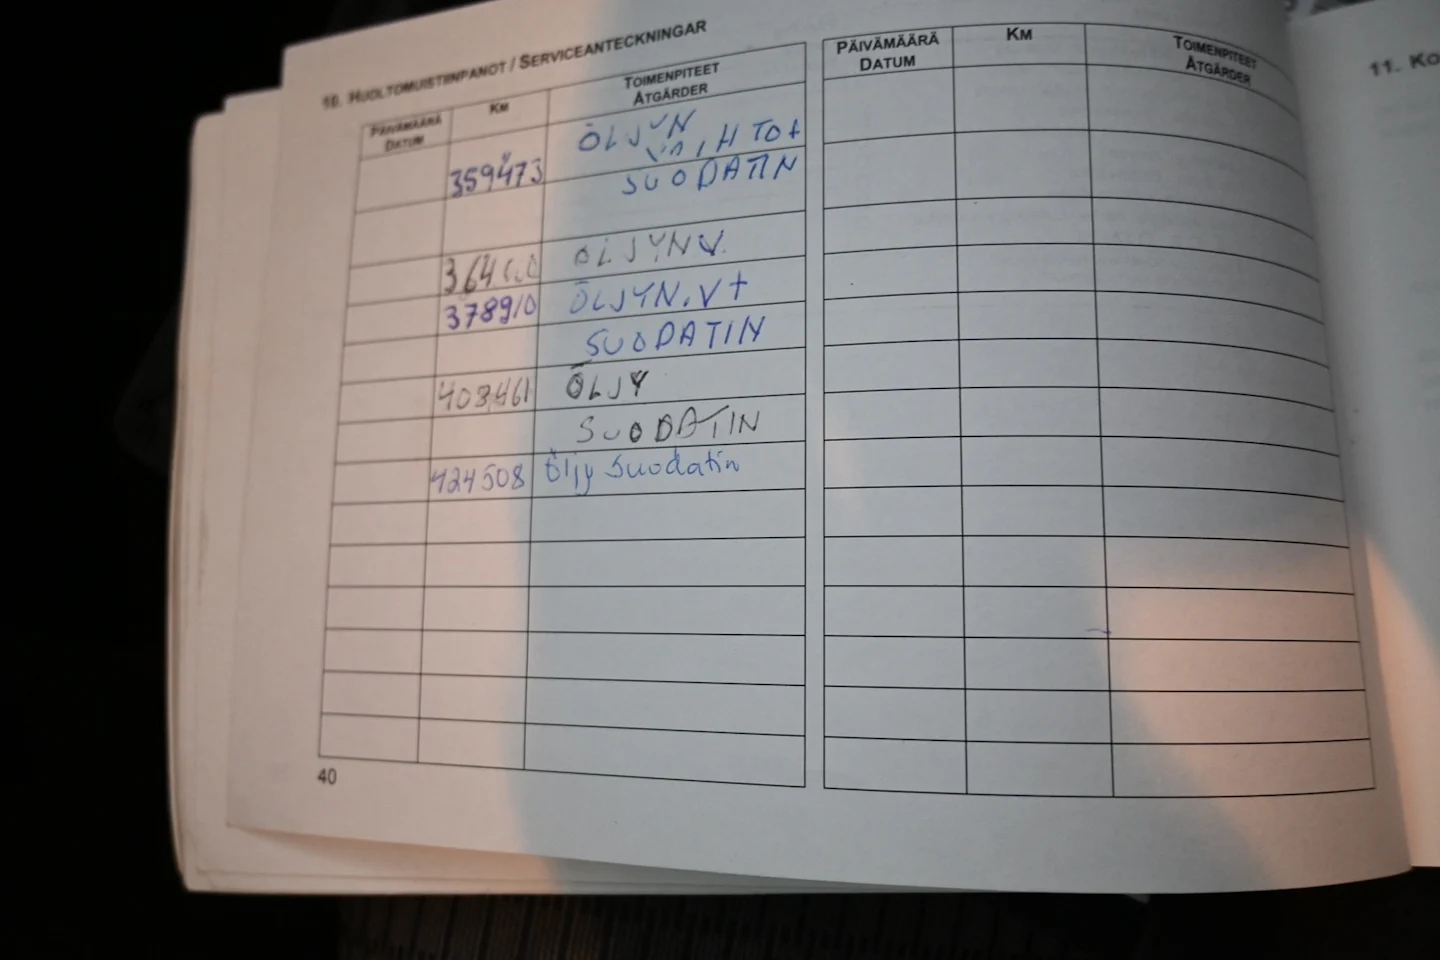 10. HUOLTOMUISTIINPANOT / SERVICEANTECKNINGAR
PÄIVÄMÄÄRÄ DATUM KM TOIMENPITEET ÅTGÄRDER
ÖLJYN
359473 VAIHTO +
SUODATIN
364 ÖLJYN V.
378910 ÖLJYN.V +
SUODATIN
403461 ÖLJY
SUODATIN
424508 Öljy Suodatin
40
PÄIVÄMÄÄRÄ DATUM KM TOIMENPITEET ÅTGÄRDER
11.